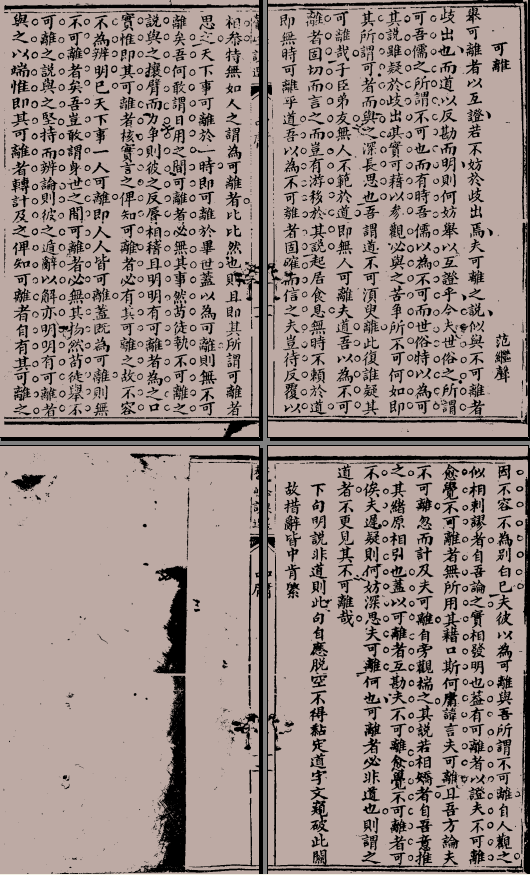 可離
范繼聲
舉可離者以互證若不妨於歧出焉夫可離之說似與不可離者
歧出也而道以反勘而明則何妨舉以互證乎今夫世俗之所謂
可吾儒之所謂不可也而有時吾儒以為不可而世俗特以為可
其說雖疑於歧出其實可藉以參觀必與之苦爭所不可何如即
其所謂可者而與之深長思也吾謂道不可須臾離此復誰疑其
可離哉子臣弟友無人不範於道即無人可離夫道吾以為不可
離者固切而言之而豈有游移於其說起居食息無時不賴於道
即無時可離乎道吾以為不可離者固確而信之夫豈待反覆以
相參特無如人之謂為可離者比比然也則且即其所謂可離者
思之天下事可離於一時即可離於畢世蓋以為可離則無不可
離矣吾何敢謂日用之間可離者必無其事然苟徒執不可離之
說與之攘臂而力爭則彼之反唇相稽且明明有可離者為之口
實惟即其可離者核實言之俾知可離者必有其可離之故不容
不為辨明已天下事一人可離即人人皆可離蓋既為可離則無
不可離者矣吾豈敢謂身世之間可離者必無其物然苟徒舉不
可離之說與之堅持而辨論則彼之遁辭以解亦明明有可離者
與之以端惟即其可離者轉計及之俾知可離者自有其可離之
因不容不為別白已夫彼以為可離與吾所謂不可離自人觀之
似相剌謬者自吾論之實相發明也蓋有可離者以證夫不可離
愈覺不可離者無所用其藉口斯何庸諱言夫可離且吾方論夫
不可離忽而計及夫可離自旁觀揣之其說若相矯者自吾意推
之其緒原相引也蓋以可離者互勘夫不可離愈覺不可離者可
不俟夫遲疑則何妨深思夫可離何也可離者必非道也則謂之
道者不更見其不可離哉
下句明說非道則此句自應脫空不得黏定道字文窺破此關
故措辭皆中肯綮
中庸